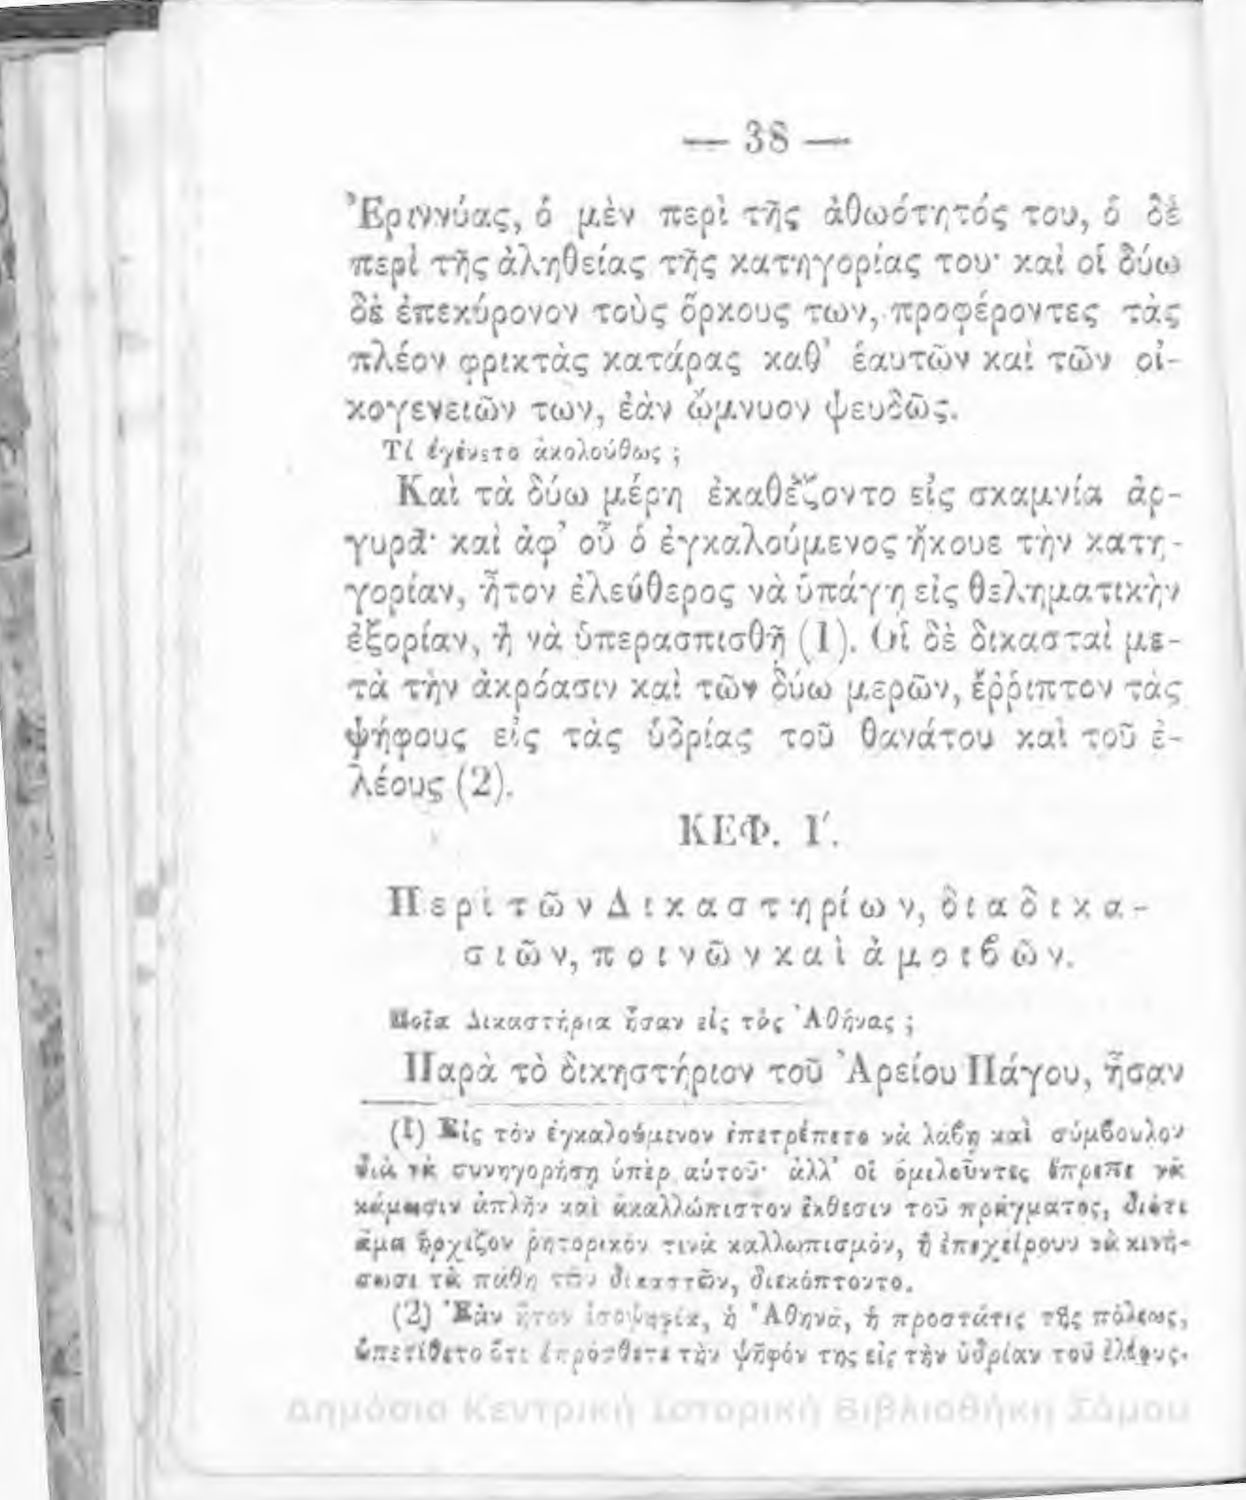 — 38 —
Ἐριννύας, ὁ μὲν περὶ τῆς ἀθωότητός του, ὁ δὲ
περὶ τῆς ἀληθείας τῆς κατηγορίας του· καὶ οἱ δύω
δὲ ἐπεκύρονον τοὺς ὅρκους των, προφέροντες τὰς
πλέον φρικτὰς κατάρας καθ’ ἑαυτῶν καὶ τῶν οἰ-
κογενειῶν των, ἐὰν ὤμνυον ψευδῶς.
Τί ἐγένετο ἀκολούθως ;
Καὶ τὰ δύω μέρη ἐκαθέζοντο εἰς σκαμνία ἀρ-
γυρᾶ· καὶ ἀφ’ οὗ ὁ ἐγκαλούμενος ἤκουε τὴν κατη-
γορίαν, ἦτον ἐλεύθερος νὰ ὑπάγῃ εἰς θεληματικὴν
ἐξορίαν, ἢ νὰ ὑπερασπισθῇ (1). Οἱ δὲ δικασταὶ με-
τὰ τὴν ἀκρόασιν καὶ τῶν δύω μερῶν, ἔῤῥιπτον τὰς
ψήφους εἰς τὰς ὑδρίας τοῦ θανάτου καὶ τοῦ ἐ-
λέους (2).
ΚΕΦ. Ι΄.
Περὶ τῶν Δικαστηρίων, διαδικα-
σιῶν, ποινῶν καὶ ἀμοιβῶν.
Ποῖα Δικαστήρια ἦσαν εἰς τὰς Ἀθήνας ;
Παρὰ τὸ δικηστήριον τοῦ Ἀρείου Πάγου, ἦσαν
(1) Εἰς τὸν ἐγκαλούμενον ἐπετρέπετο νὰ λάβῃ καὶ σύμβουλον
διὰ νὰ συνηγορήσῃ ὑπὲρ αὐτοῦ· ἀλλ’ οἱ ὁμιλοῦντες ἔπρεπε νὰ
κάμωσιν ἁπλῆν καὶ ἀκαλλώπιστον ἔκθεσιν τοῦ πράγματος, διότι
ἅμα ἤρχιζον ῥητορικόν τινα καλλωπισμόν, ἢ ἐπεχείρουν νὰ κινή-
σωσι τὰ πάθη τῶν δικαστῶν, διεκόπτοντο.
(2) Ἐὰν ἦτον ἰσοψηφία, ἡ Ἀθηνᾶ, ἡ προστάτις τῆς πόλεως,
ὑπετίθετο ὅτι ἐπρόσθετε τὴν ψῆφόν της εἰς τὴν ὑδρίαν τοῦ ἐλέους.
Δημόσια Κεντρική Ιστορική Βιβλιοθήκη Σάμου